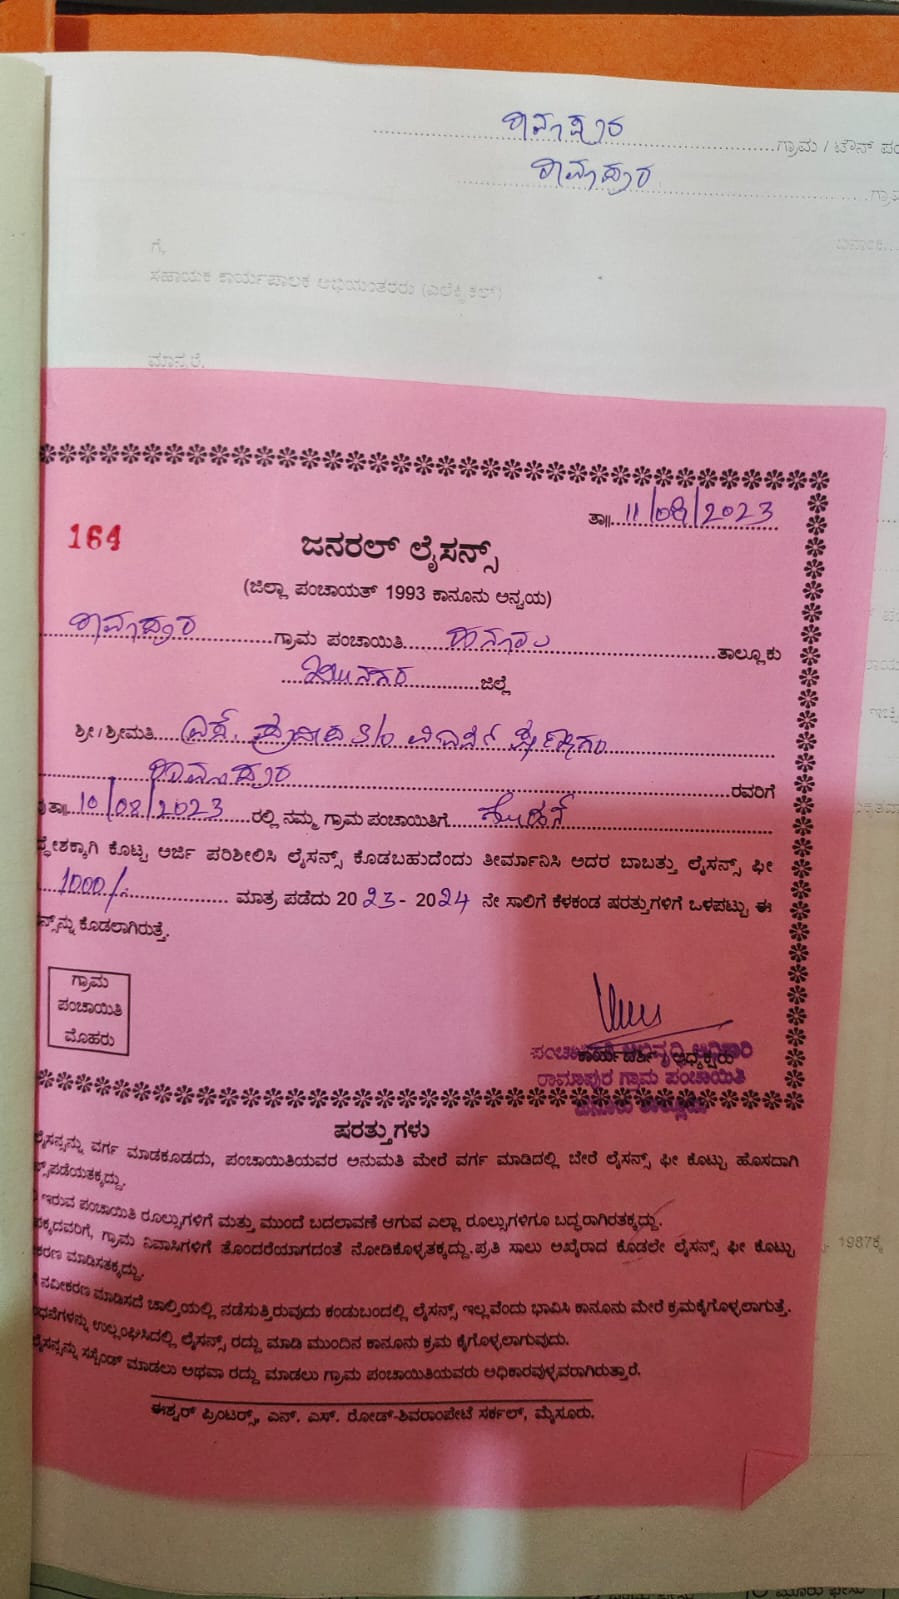 ರಾಮಾಪುರ ಗ್ರಾಮ / ಟೌನ್ ಪಂ
ರಾಮಾಪುರ ಗ್ರಾ
ಗೆ,
ಸಹಾಯಕ ಕಾರ್ಯಪಾಲಕ ಅಭಿಯಂತರರು (ಎಲೆಕ್ಟ್ರಿಕಲ್)
ಮಾನ್ಯರೆ,
ತಾ॥ 11/08/2023
164
ಜನರಲ್ ಲೈಸನ್ಸ್
(ಜಿಲ್ಲಾ ಪಂಚಾಯತ್ 1993 ಕಾನೂನು ಅನ್ವಯ)
ರಾಮಾಪುರ ಗ್ರಾಮ ಪಂಚಾಯಿತಿ ಹನೂರು ತಾಲ್ಲೂಕು
ಚಾ॥ನಗರ ಜಿಲ್ಲೆ
ಶ್ರೀ / ಶ್ರೀಮತಿ S/o
ರಾಮಾಪುರ ರವರಿಗೆ
ತಾ॥ 10/08/2023 ರಲ್ಲಿ ನಮ್ಮ ಗ್ರಾಮ ಪಂಚಾಯಿತಿಗೆ
ದ್ದೇಶಕ್ಕಾಗಿ ಕೊಟ್ಟ ಅರ್ಜಿ ಪರಿಶೀಲಿಸಿ ಲೈಸನ್ಸ್ ಕೊಡಬಹುದೆಂದು ತೀರ್ಮಾನಿಸಿ ಅದರ ಬಾಬತ್ತು ಲೈಸನ್ಸ್ ಫೀ
1000/- ಮಾತ್ರ ಪಡೆದು 2023 - 2024 ನೇ ಸಾಲಿಗೆ ಕೆಳಕಂಡ ಷರತ್ತುಗಳಿಗೆ ಒಳಪಟ್ಟು ಈ
ನ್ಸ್‌ನ್ನು ಕೊಡಲಾಗಿರುತ್ತೆ.
ಗ್ರಾಮ
ಪಂಚಾಯಿತಿ
ಮೊಹರು
ಪಂಚಾಯಿತಿ ಅಭಿವೃದ್ಧಿ ಅಧಿಕಾರಿ
ಕಾರ್ಯದರ್ಶಿ / ಅಧ್ಯಕ್ಷರು
ರಾಮಾಪುರ ಗ್ರಾಮ ಪಂಚಾಯಿತಿ
ಹನೂರು ತಾಲ್ಲೂಕು
ಷರತ್ತುಗಳು
ಲೈಸನ್ಸನ್ನು ವರ್ಗ ಮಾಡಕೂಡದು, ಪಂಚಾಯಿತಿಯವರ ಅನುಮತಿ ಮೇರೆ ವರ್ಗ ಮಾಡಿದಲ್ಲಿ ಬೇರೆ ಲೈಸನ್ಸ್ ಫೀ ಕೊಟ್ಟು ಹೊಸದಾಗಿ
ನ್ಸ್‌ಪಡೆಯತಕ್ಕದ್ದು.
ಇರುವ ಪಂಚಾಯಿತಿ ರೂಲ್ಸುಗಳಿಗೆ ಮತ್ತು ಮುಂದೆ ಬದಲಾವಣೆ ಆಗುವ ಎಲ್ಲಾ ರೂಲ್ಸುಗಳಿಗೂ ಬದ್ಧರಾಗಿರತಕ್ಕದ್ದು.
ಪಕ್ಕದವರಿಗೆ, ಗ್ರಾಮ ನಿವಾಸಿಗಳಿಗೆ ತೊಂದರೆಯಾಗದಂತೆ ನೋಡಿಕೊಳ್ಳತಕ್ಕದ್ದು. ಪ್ರತಿ ಸಾಲು ಅಖೈರಾದ ಕೂಡಲೇ ಲೈಸನ್ಸ್ ಫೀ ಕೊಟ್ಟು
ಕರಣ ಮಾಡಿಸತಕ್ಕದ್ದು.
ನವೀಕರಣ ಮಾಡಿಸದೆ ಚಾಲ್ತಿಯಲ್ಲಿ ನಡೆಸುತ್ತಿರುವುದು ಕಂಡುಬಂದಲ್ಲಿ ಲೈಸನ್ಸ್ ಇಲ್ಲವೆಂದು ಭಾವಿಸಿ ಕಾನೂನು ಮೇರೆ ಕ್ರಮಕೈಗೊಳ್ಳಲಾಗುತ್ತೆ.
ಧನೆಗಳನ್ನು ಉಲ್ಲಂಘಿಸಿದಲ್ಲಿ ಲೈಸನ್ಸ್ ರದ್ದು ಮಾಡಿ ಮುಂದಿನ ಕಾನೂನು ಕ್ರಮ ಕೈಗೊಳ್ಳಲಾಗುವುದು.
ಲೈಸನ್ಸನ್ನು ಸಸ್ಪೆಂಡ್ ಮಾಡಲು ಅಥವಾ ರದ್ದು ಮಾಡಲು ಗ್ರಾಮ ಪಂಚಾಯಿತಿಯವರು ಅಧಿಕಾರವುಳ್ಳವರಾಗಿರುತ್ತಾರೆ.
1987ಕ್ಕೆ
ಈಶ್ವರ್ ಪ್ರಿಂಟರ್ಸ್, ಎನ್. ಎಸ್. ರೋಡ್-ಶಿವರಾಂಪೇಟೆ ಸರ್ಕಲ್, ಮೈಸೂರು.